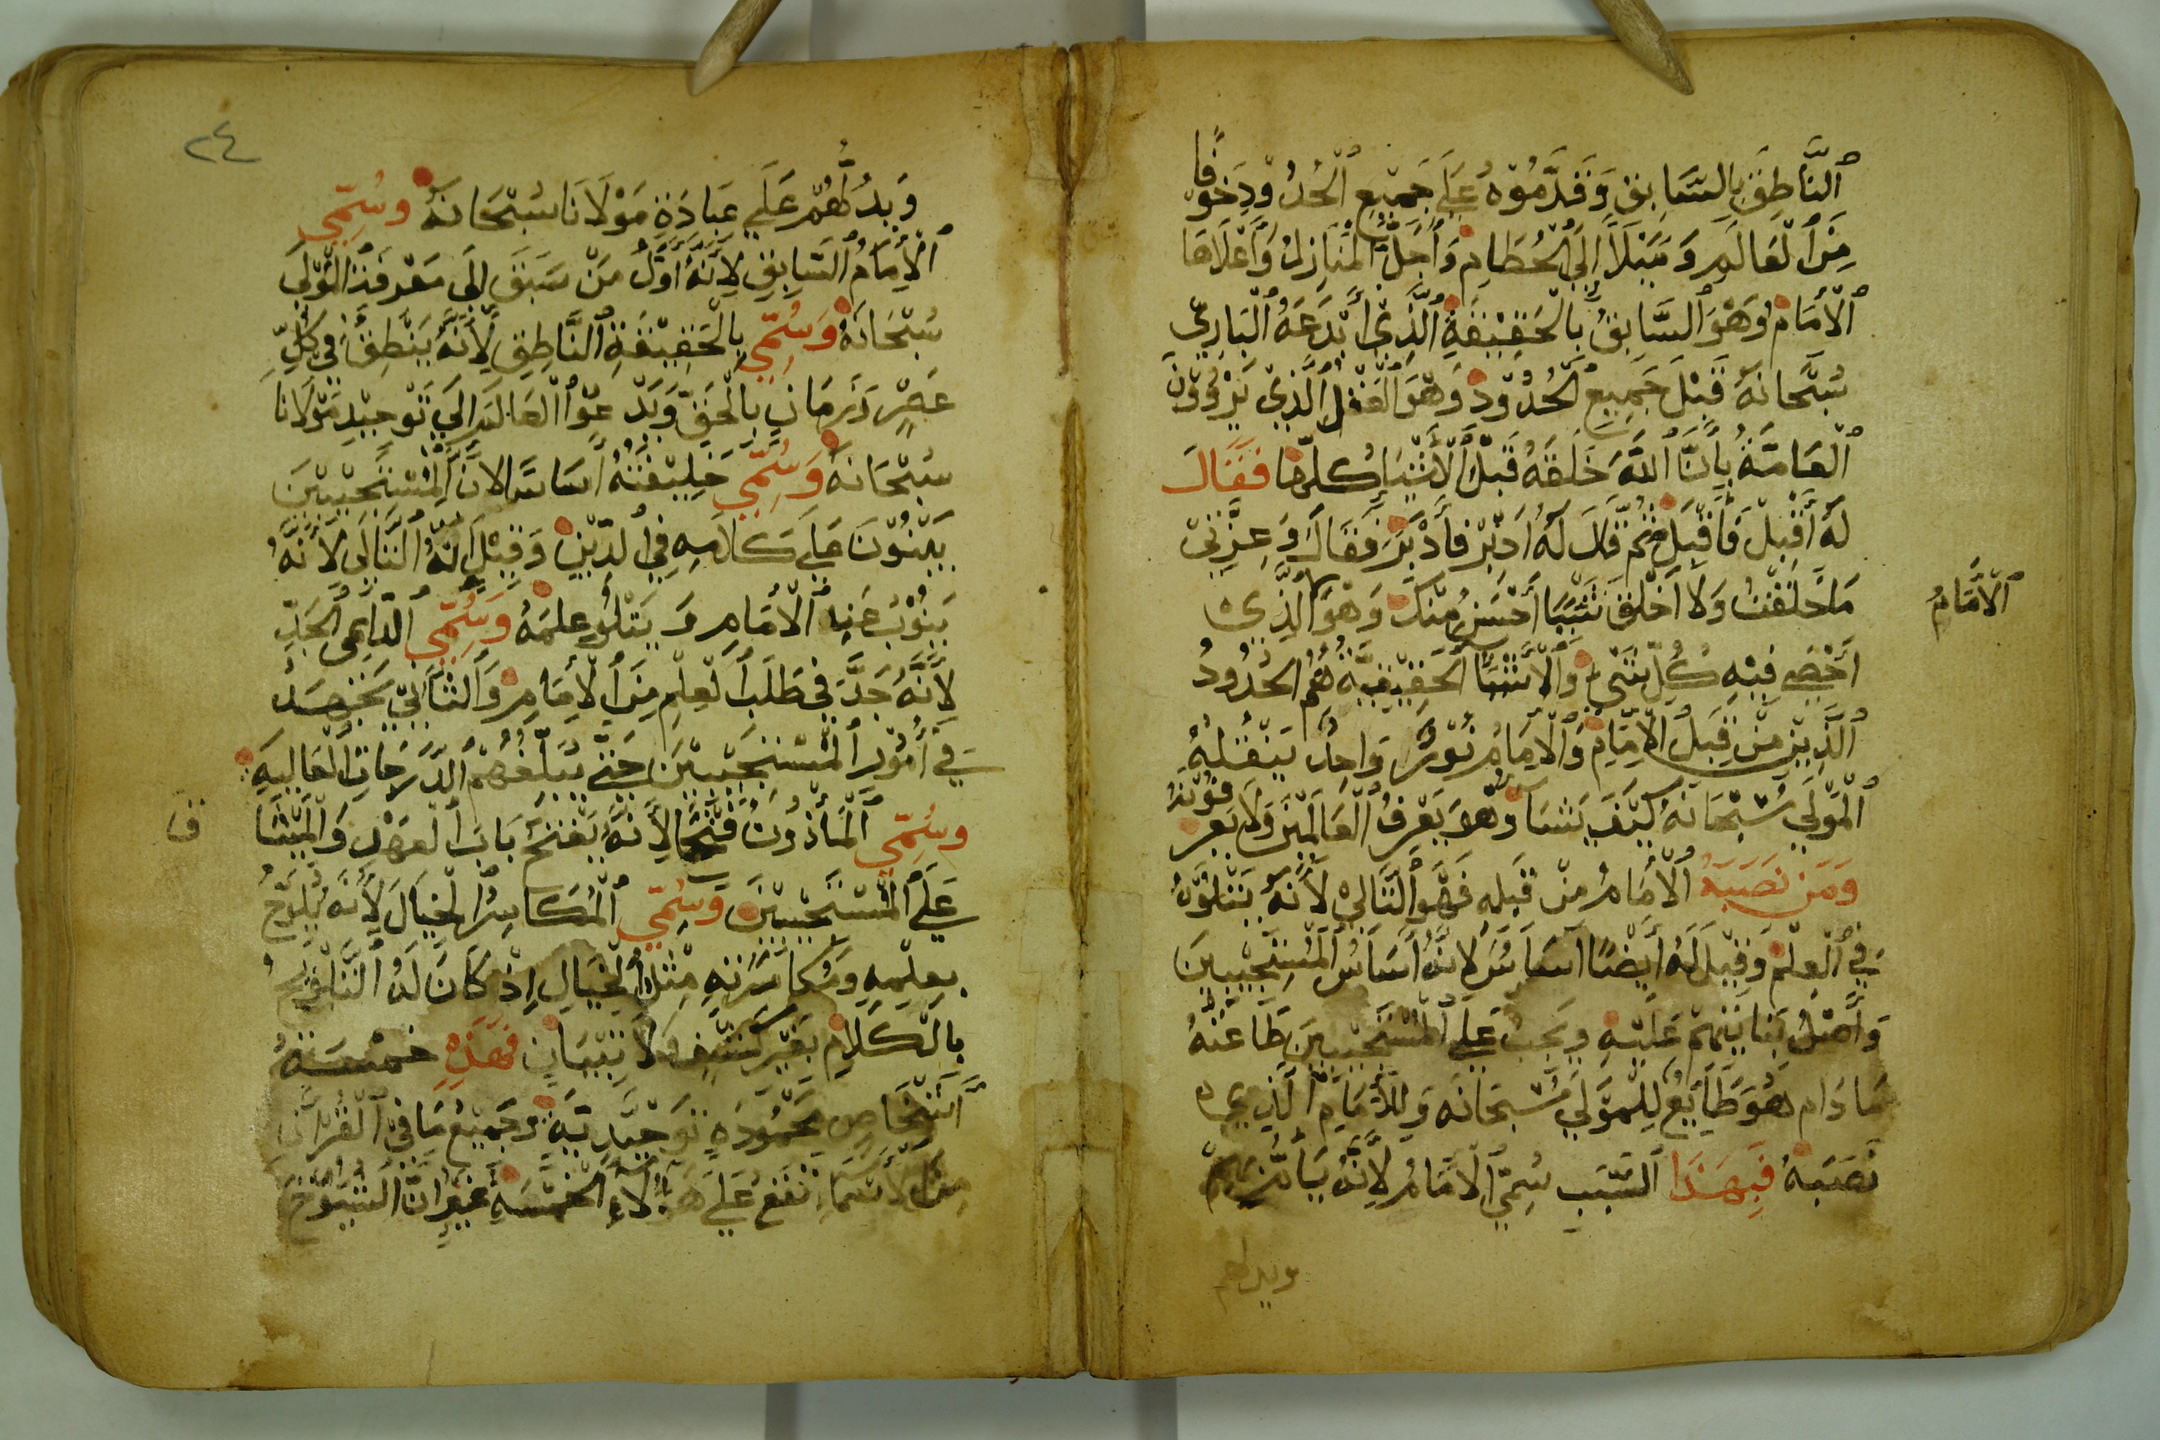 ٱلنَّاطِقَ بِالسَّابِقْ وَقَدَّمُوْهُ عَلَى جَمِيْعِ ٱلْحُدُوْدِ خَوْفًا
مِنَ ٱلْعَالَمِ وَمَيَلَاً اِلَى ٱلْحُطَامِ وَأَجَلُّ الْمَنَازِلْ وَأَعْلَاهَا
ٱلْأَمَامُ وَهْوَ السَّابِقُ بِالْحَقِيْقَةِ الَّذِيْ أَبْدَعَهُ ٱلْبَارِيْ
سُبْحَانَهُ قَبْلَ جَمِيعِ ٱلْحُدُوْدْ وَهْوَ الْعَقْلُ الَّذِيْ يَرْوُوْنَ
ٱلْعَامَّةُ بِأَنَّ اللَّهَ خَلَقَهُ قَبْلَ ٱلْأَشْيَا كُلّهَا فَقَالَ
لَهُ أَقْبِلْ فَأَقْبَلَ ثُمَّ قَالَ لَهُ أَدْبِرْ فَأَدْبَرَ فَقَالَ وَعِزَّتِيْ
مَا خَلَقْتُ وَلَا أَخْلُقُ شَيْئًا أَحْسَنُ مِنْكَ وَهْوَ الَّذِيْ
أُحْصِيَ فِيْهِ كُلَّ شَيْءٍ وَٱلْأَشْيَا الْحَقِيْقِيَّةُ هُمُ الْحُدُودُ
ٱلَّذِيْنَ مِنْ قِبَلِ الْإِمَامِ وَٱلْاِمَامُ نُوْرٌ وَاحِدٌ يَنْقُلُهُ
ٱلْمَوْلَى سُبْحَانَهُ كَيْفَ يَشَا وَهْوَ يَعْرِفُ ٱلْعَالَمِيْنَ وَلَا يَعْرِفُوْنَهُ
وَمَنْ نَصَبَهُ ٱلْأَمَامُ مِنْ قِبَلِهِ فَهْوَ التَّالِيْ لَأَنَّهُ يَتْلُوْهُ
فِي ٱلْعِلْمْ وَقِيْلَ لَهُ أَيْضًا أَسَاسْ لِاَنَّهُ أَسَاسُ الْمُسْتَجِيْبِيْنَ
وَأَصْلُ بُنَايَتِهِمْ عَلَيْهِ وَيَجِبُ عَلَى الْمُسْتَجِيْبِيْنَ طَاعَتُهُ
مَا دَامَ هُوَ طَايِعٌ لِلْمَوْلَى سُبْحَانَهُ وَلِلْأَمَامِ الَّذِيْ
نَصَبَهُ فَبِهَذَا ٱلسَّبَبِ سُمِّيَ ٱلْأَمَامُ لِأَنَّهُ يَأُمُّ بِهِمْ
ويدلهم
ٱلْأَمَامُ
٢٤
وَيَدُلُّهُمْ عَلَى عِبَادَةِ مَوْلَانَا سُبْحَانَهُ وسُمِّيَ
ٱلْأِمَامُ السَّابِقِ لِأَنَّهُ أَوَّلُ مَنْ سَبَقَ إِلَى مَعْرِفَةِ الْمَوْلَى
سُبْحَانَهُ وَسُمِّيَ بِالْحَقِيْقَةِ ٱلنَّاطِقِ لِأَنَّهُ يَنْطِقُ فِي كُلِّ
عَصْرٍ وَزَمَانٍ بِالْحَقِّ وَيَدْعُوْا الْعَالَمَ اِلَى تَوْحِيْدِ مَوْلَانَا
سُبْحَانَهُ وَسُمِّيَ خَلِيْفَتُهُ أَسَاسًا لِانَّ الْمُسْتَجِيْبِيْنَ
يَبْنُوْنَ عَلَى كَلَامِهِ فِي الدّيْنِ وَقِيْلَ لَهُ التَّالِي لَأَنَّهُ
يَنُوْبُ عَنِ ٱلْأَمَامِ وَيَتْلُو عِلمَهُ وَسُمِّيَ الدَّاعِي الْجَدّ
لِأَنَّهُ جَدَّ فِي طَلَبِ الْعِلْمِ مِنَ الْأِمَامِ وَالثَّانِيْ يَجْتَهِدُ
فِي أُمُوْرِ الْمُسْتَجِيْبِيْنَ حَتَّى يُبَلِّغُهُمُ الدَّرَجَاتِ الْعَالِيَهِ
وسُمِّيَ ٱلْمَأْذُونُ فَتْحًا لِأَنَّهُ يَفْتَحُ بَابَ الْعَهْدِ وَالْمِيْثَا
ق
عَلَى ٱلْمُسْتَجِيْبِيْنَ وَسُمِّيَ ٱلْمُكَاسِرُ الْخَيَالَ لِأَنَّهُ يُلَوِّحُ
بِعِلْمِهِ وَمُكَاسَرَتِهِ مِثْلَ الْخَيَالِ إِذْ كَانَ لَهُ التَّلْوِيْحُ
بِالْكَلَامْ بِغَيْرِ كَشْفٍ وَلَا تِبْيَانٍ فَهَذِهِ خَمْسَةُ
أَشْخَاصٍ مَحْمُوْدَةٍ تَوْحِيْدِيَّةٍ وَجَمِيْعُ مَا فِي ٱلْقُرْاٰنِ
مِنَ ٱلْأَسْمَاءِ تَقَعُ عَلَى هَؤُلَاءِ الْخَمْسَةْ غَيْرَ أَنَّ الشُّيُوْخَ